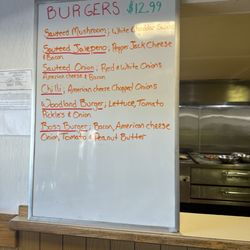 BURGERS $12.99
Sauteed Mushroom; White Cheddar Swiss
Sauteed Jalapeno; Pepper Jack Cheese
& Bacon
Sauteed Onion; Red & White Onions
American cheese & Bacon
Chilli; American cheese Chopped Onions
Woodland Burger; Lettuce, Tomato
Pickles & Onion
Boss Burger; Bacon, American cheese
Onion, Tomato & Peanut Butter